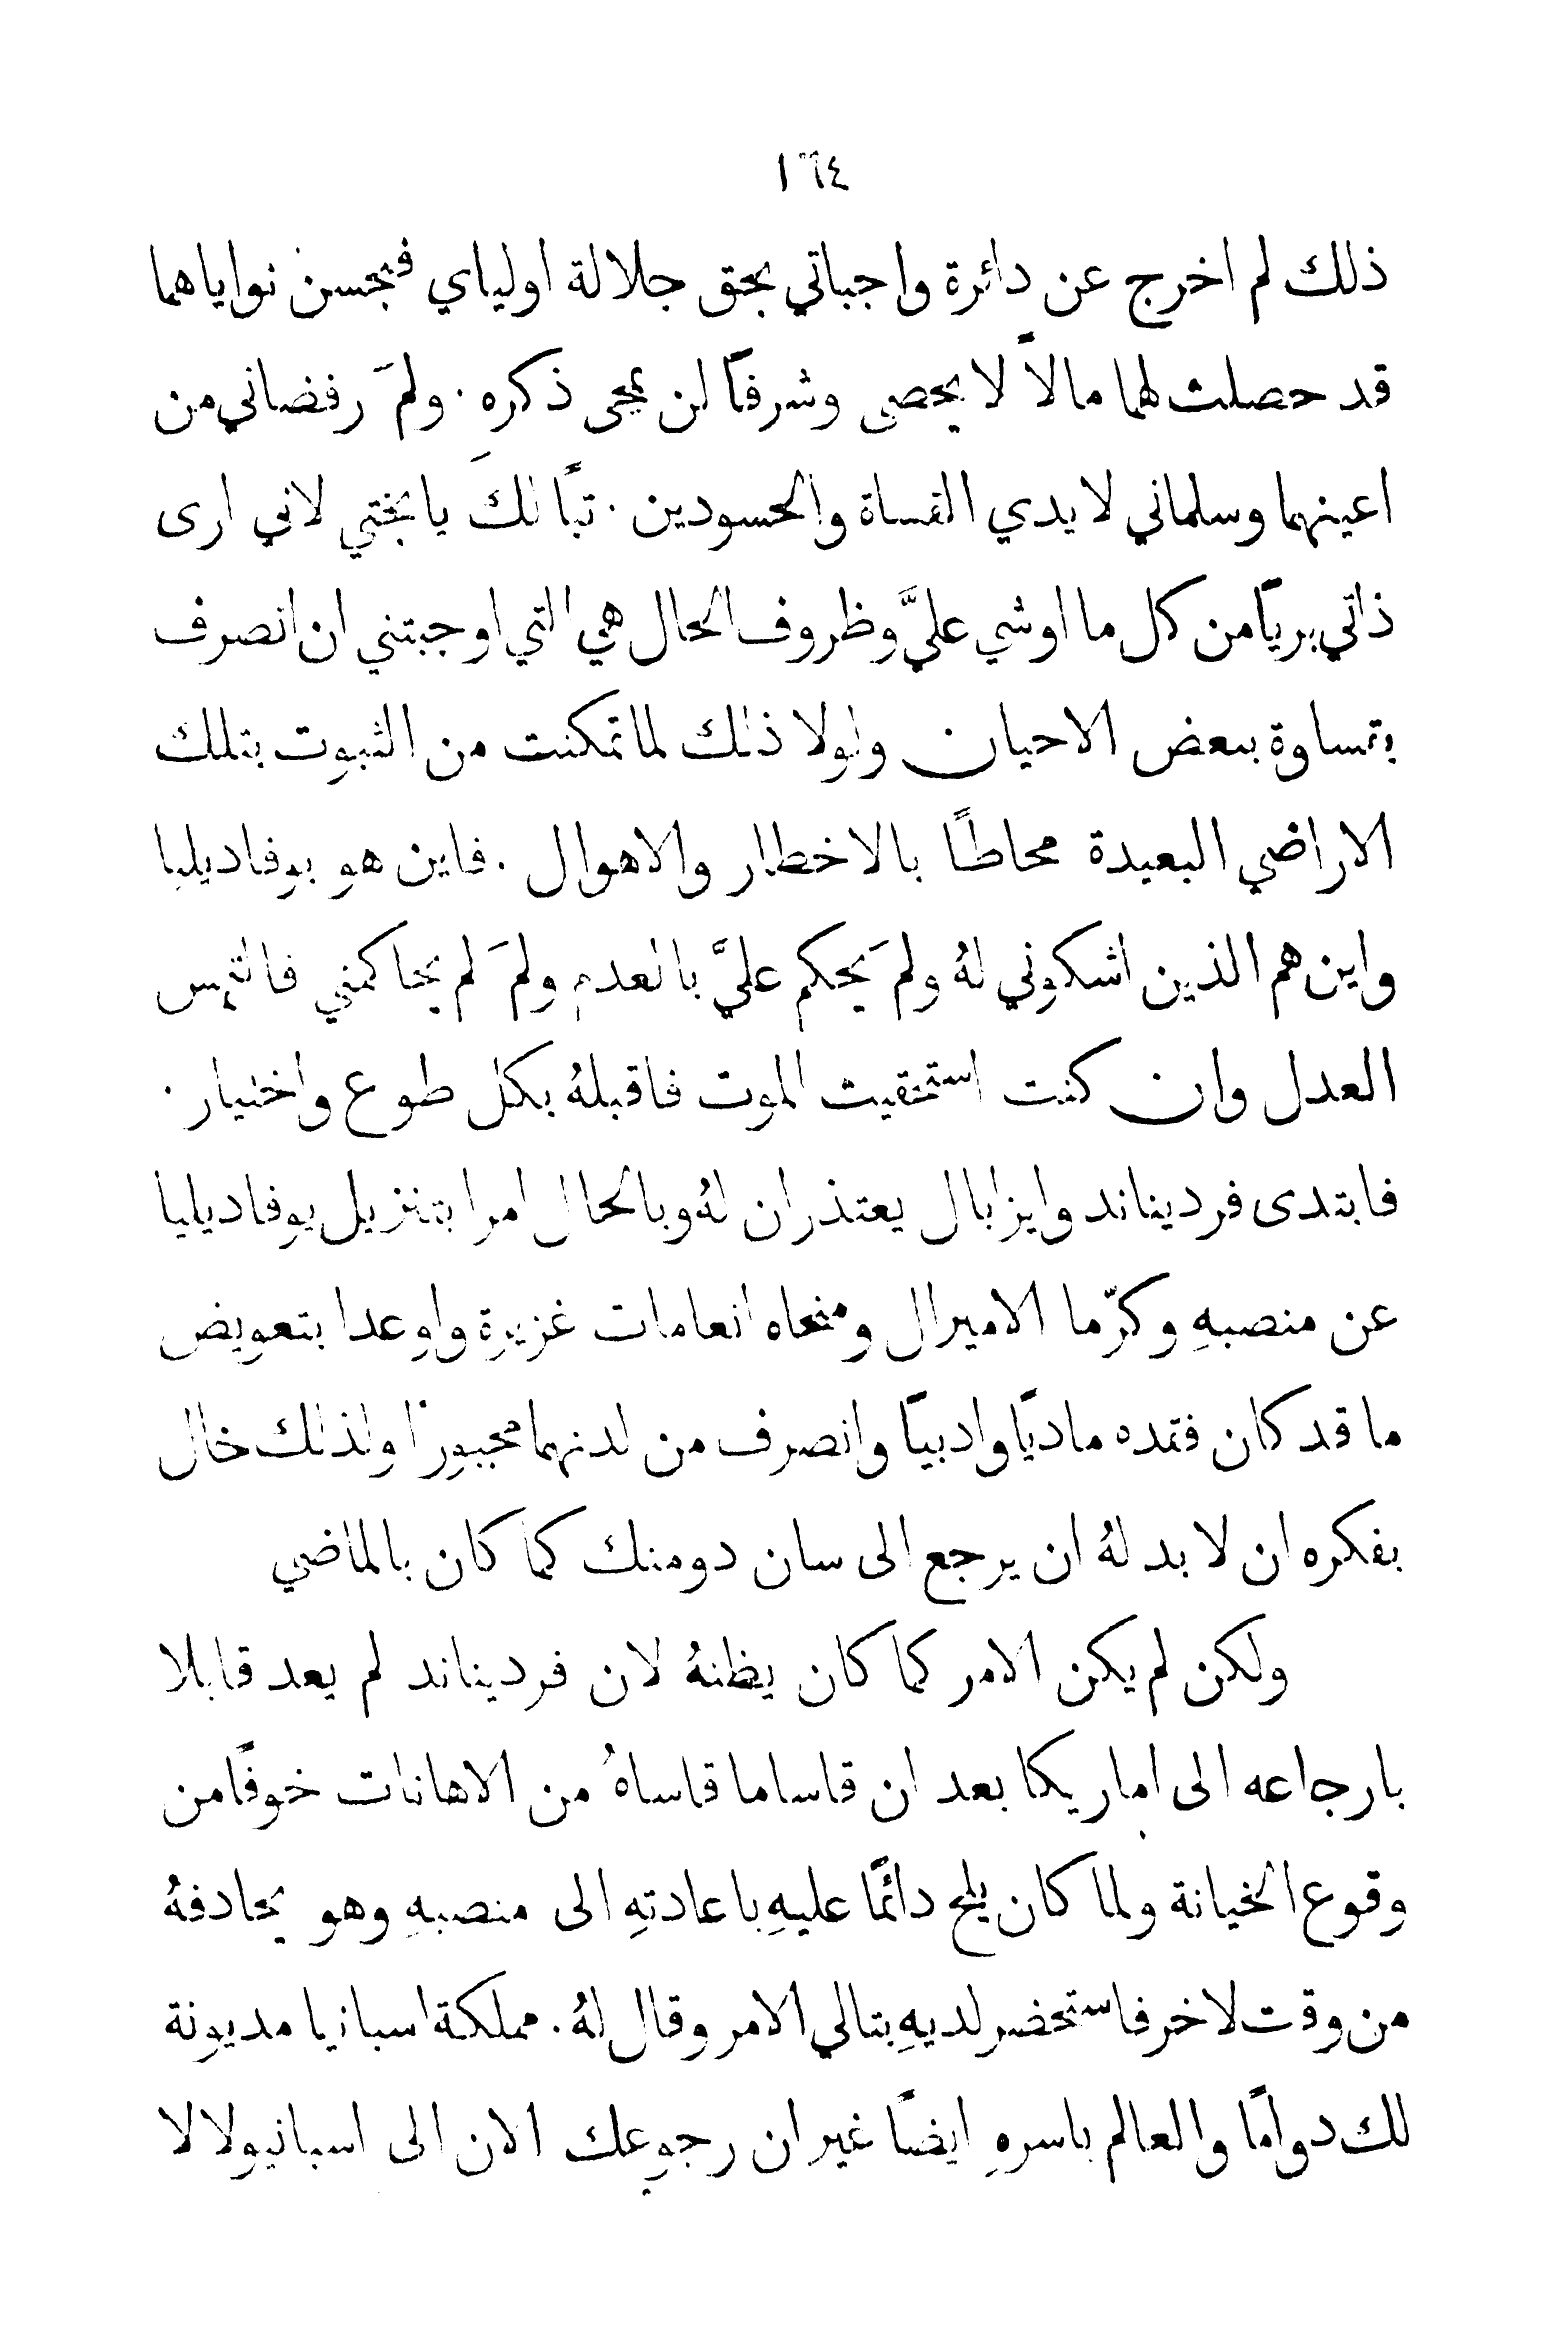 ١٦٤
ذلك لم اخرج عن دائرة واجباتي بحق جلالة اولياي فبحسن نواياهما
قد حصلت لهما مالاً لا يحصى وشرفاً لن يمحى ذكره . ولمَ رفضاني من
اعينهما وسلماني لايدي القساة والحسودين . تبًا لكَ يا بختي لاني ارى
ذاتي بريًا من كل ما اوشي عليَّ وظروف الحال هي التي اوجبتني ان اتصرف
بقساوة ببعض الاحيان ولولا ذلك لما تمكنت من الثبوت بتلك
الاراضي البعيدة محاطًا بالاخطار والاهوال . فاين هو بوفاديليا
واين هم الذين اشكوني لهُ ولمَ يحكم عليَّ بالعدم ولمَ لم يحاكمني فالتمس
العدل وان كنت استحقيت الموت فاقبلهُ بكل طوع واختيار .
فابتدى فرديناند وايزابال يعتذران لهُ وبالحال امرا بتنزيل بوفاديليا
عن منصبهِ وكرّما الاميرال ومنحاه انعامات غزيرة واوعدا بتعويض
ما قد كان فقده ماديًا وادبيًا وانصرف من لدنهما مجبورًا ولذلك خال
بفكره ان لا بد لهُ ان يرجع الى سان دومنك كما كان بالماضي
ولكن لم يكن الامر كما كان يظنهُ لان فرديناند لم يعد قابلا
بارجاعه الى اماريكا بعد ان قاسا ما قاساهُ من الاهانات خوفًا من
وقوع الخيانة ولما كان يلح دائمًا عليهِ باعادتهِ الى منصبهِ وهو يحادفهُ
من وقت لاخر فاستحضر لديهِ بتالي الامر وقال لهُ . مملكة اسبانيا مديونة
لك دوامًا والعالم باسرهِ ايضًا غير ان رجوعك الان الى اسبانيولا لا